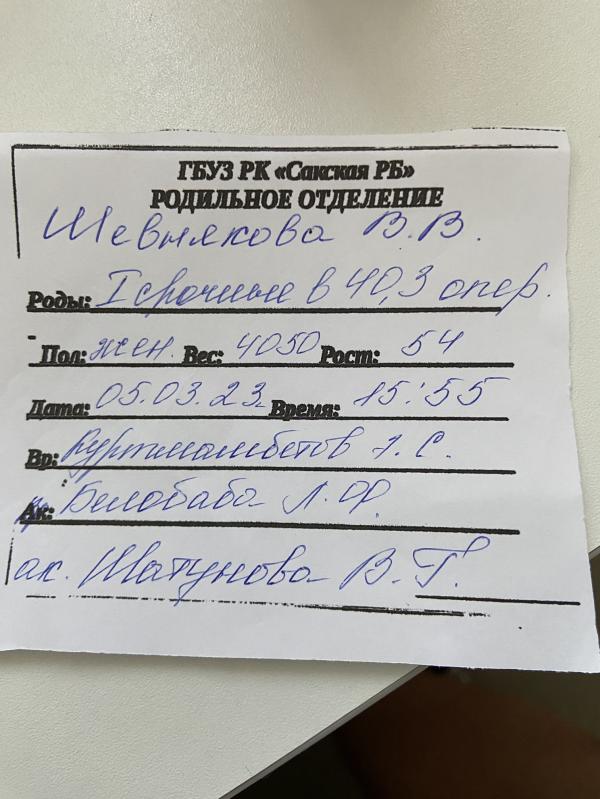 ГБУЗ РК «Сакская РБ»
РОДИЛЬНОЕ ОТДЕЛЕНИЕ
Шевнякова В.В.
Роды: I срочные в 40,3 опер.
Пол: жен. Вес: 4050 Рост: 54
Дата: 05.03.23г. Время: 15:55
Вр: Куртмамбетов Э.С.
Ак: Белобаба Л.Ф.
ак. Шатунова В.Г.